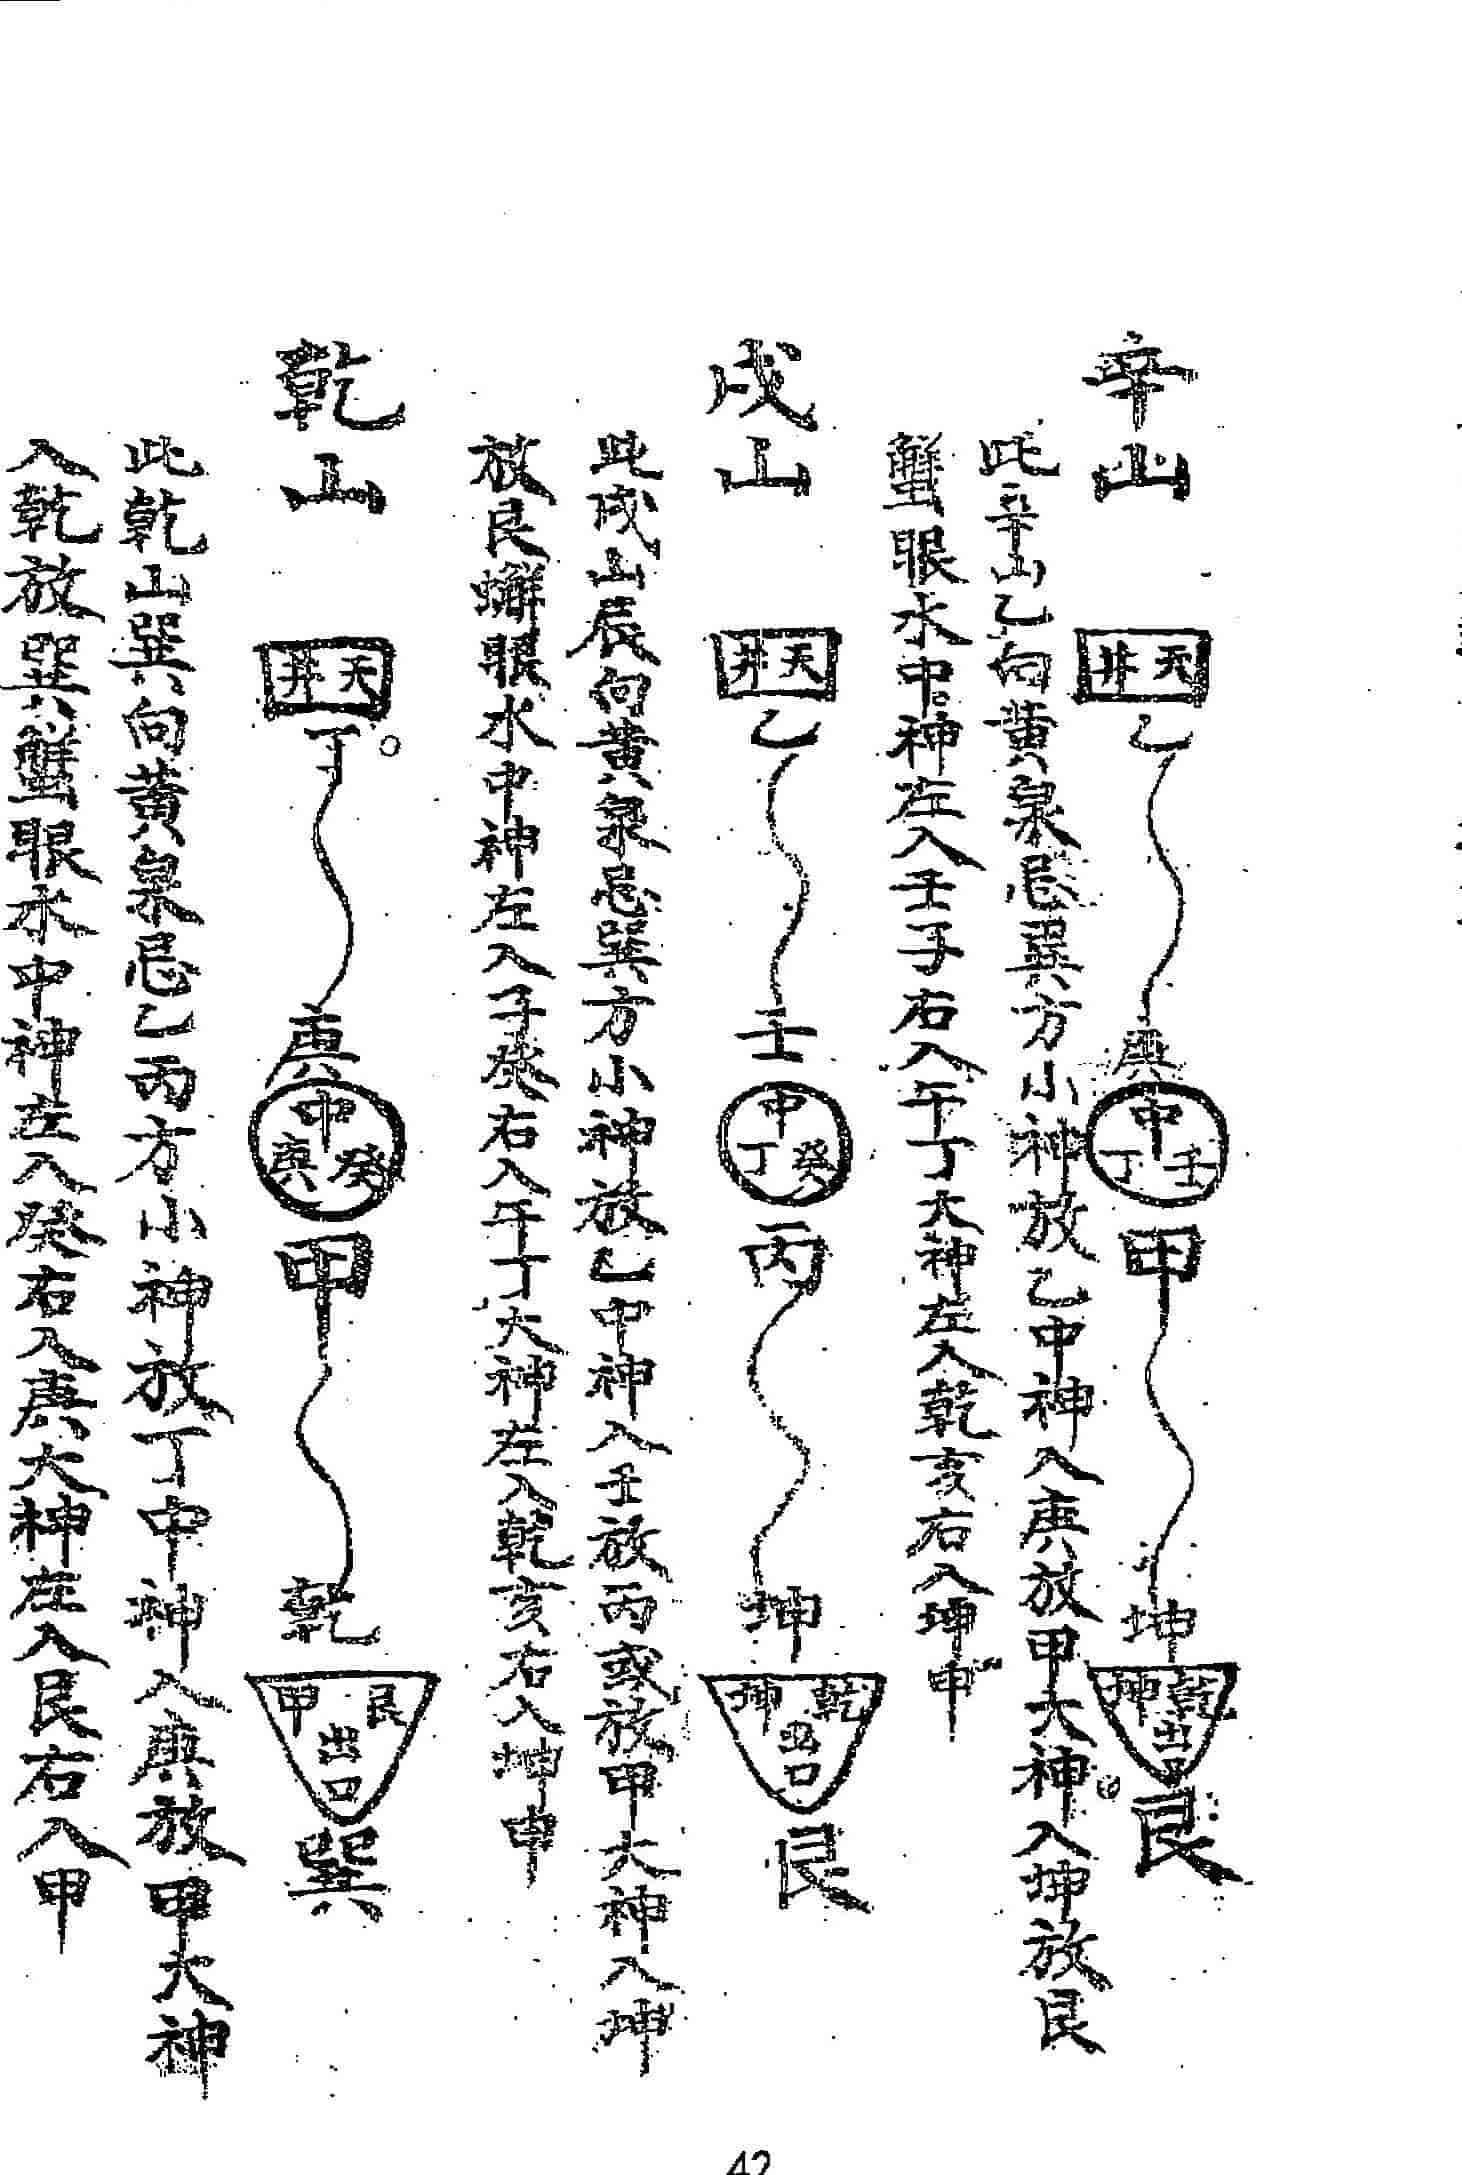 辛山
天井
乙
庚
中
壬
丁
甲
坤
乾
坤
出口
艮
此辛山乙向黄泉忌巽方小神放乙中神入庚放甲大神入坤放艮
蟹眼水中神左入壬子右入午丁大神左入乾亥右入坤申
戌山
天井
乙
壬
中
癸
丁
丙
坤
乾
坤
出口
艮
此戌山辰向黄泉忌巽方小神放乙中神入壬放丙或放甲大神入坤
放艮蠏眼水中神左入子癸右入午丁大神左入乾亥右入坤申
乾山
天井
丁
庚
中
癸
庚
甲
乾
艮
甲
出口
巽
此乾山巽向黄泉忌乙丙方小神放丁中神入庚放甲大神
入乾放巽蟹眼水中神左入癸右入庚大神左入艮右入甲
42